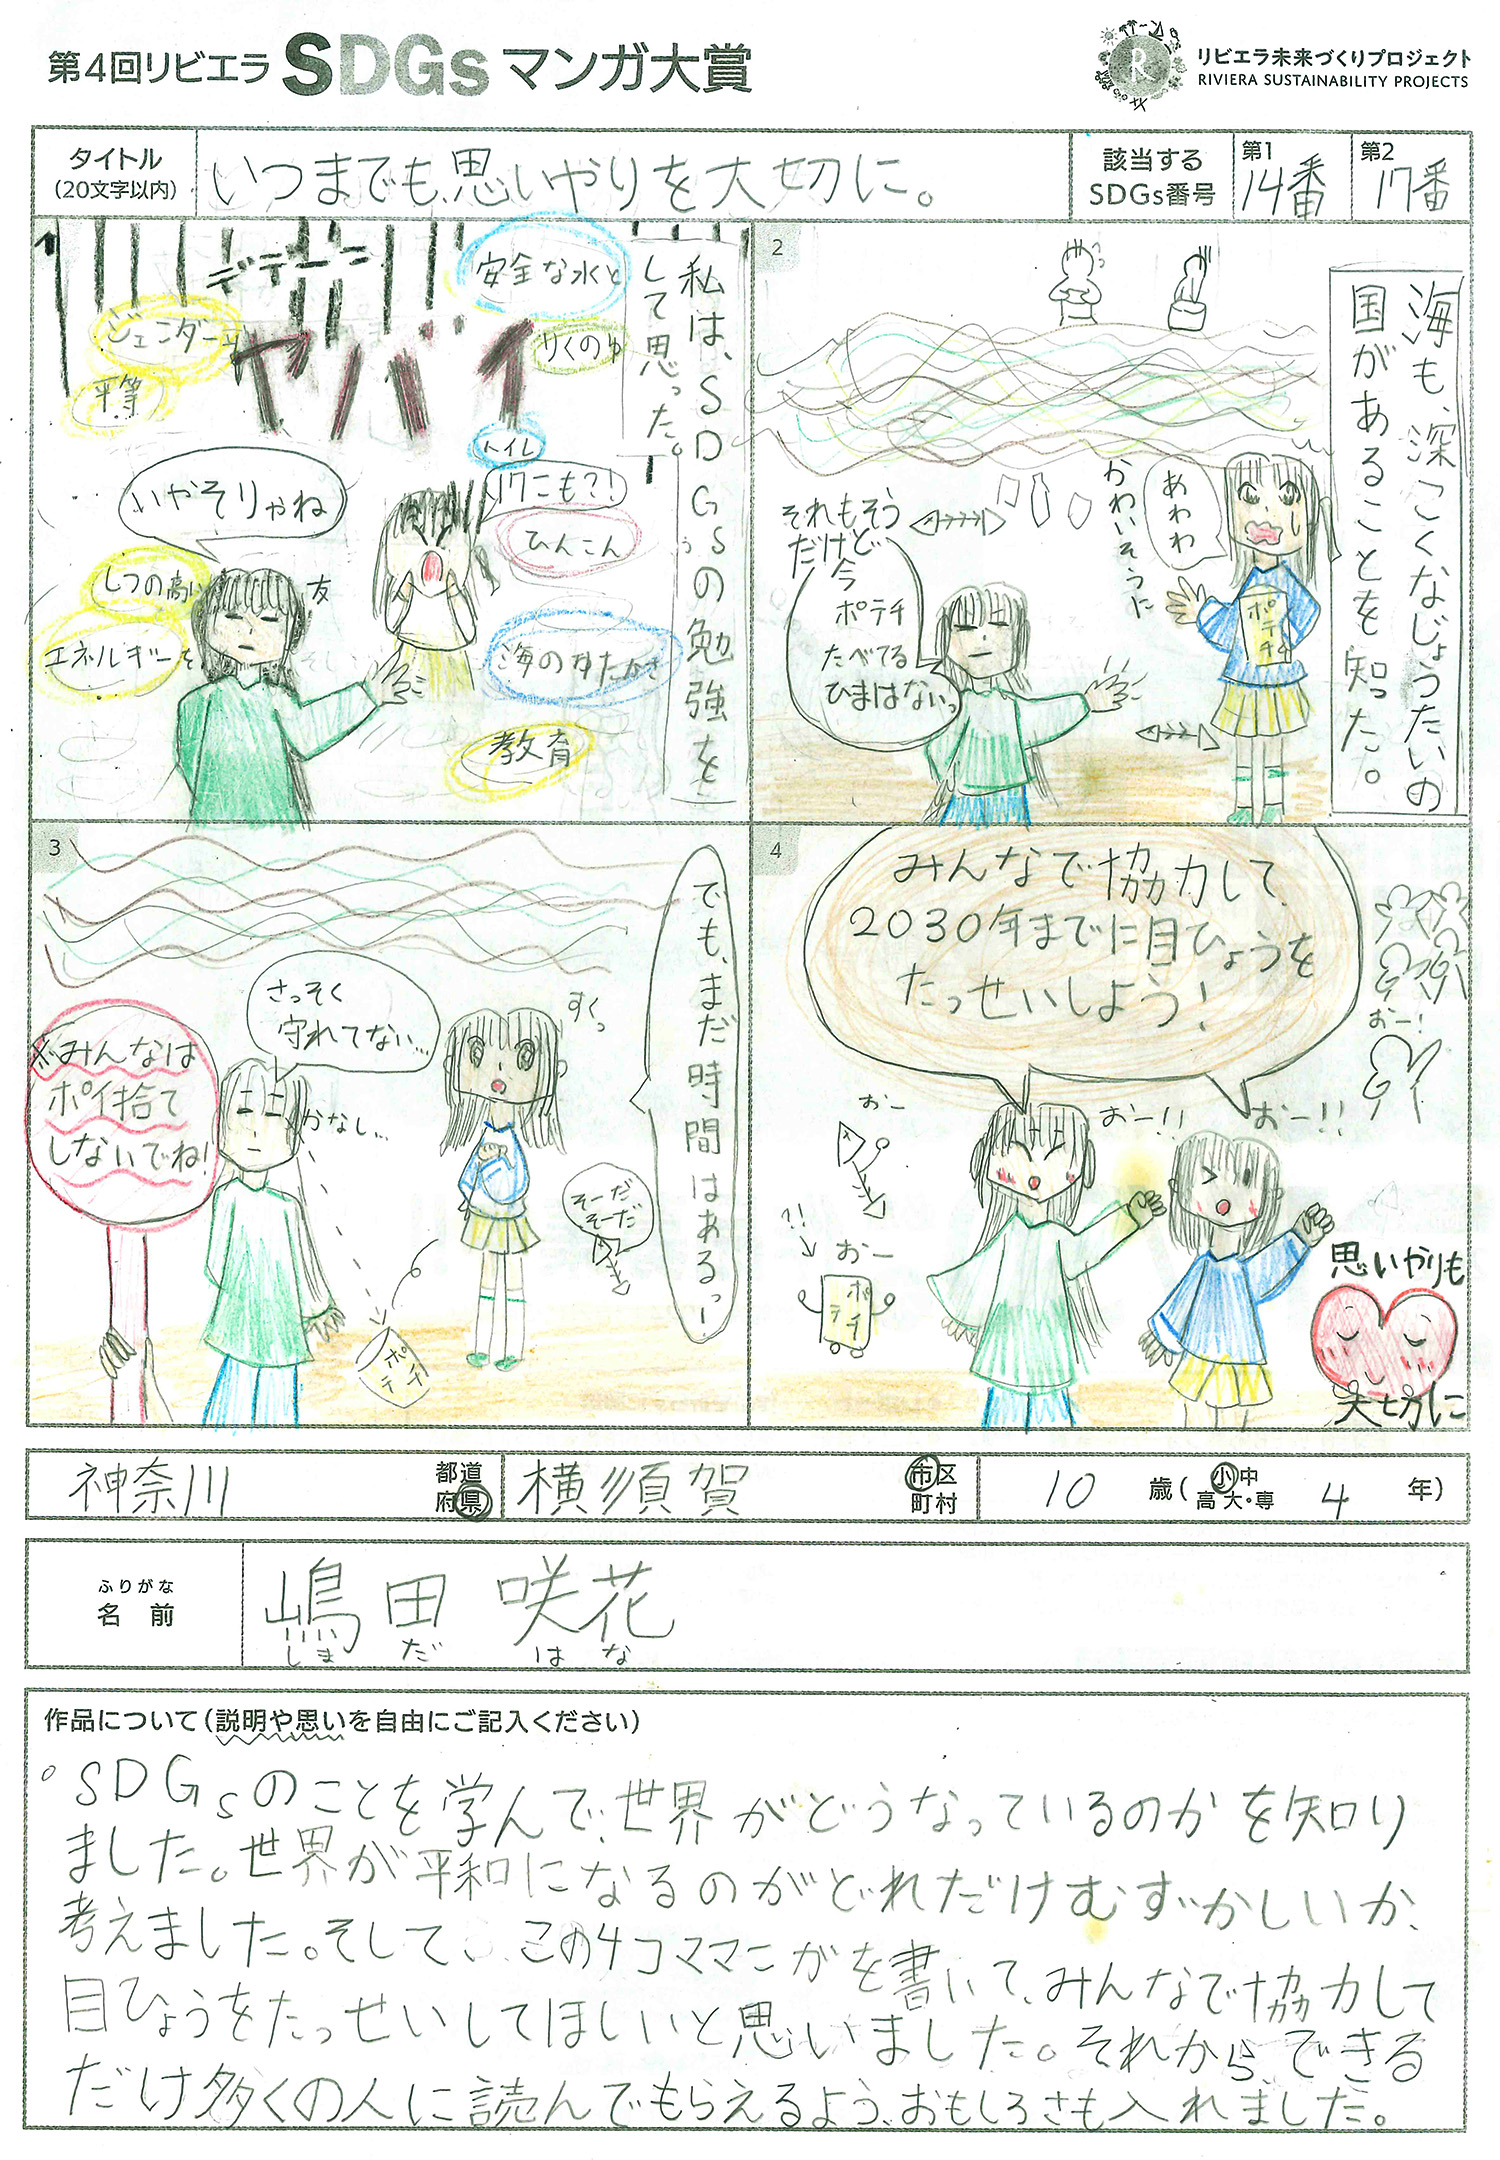 第4回リビエラ SDGs マンガ大賞
リビエラ未来づくりプロジェクト
RIVIERA SUSTAINABILITY PROJECTS
タイトル
(20文字以内)
いつまでも、思いやりを大切に。
該当する
SDGs番号
第1
14番
第2
17番
1
私は、SDGsの勉強を
して思った。
デデーン
ヤバイ
安全な水と
トイレ
ジェンダー
平等
りくのゆ
17こも?!
ひんこん
いやそりゃね
友
しつの高い
エネルギーを
海のゆたかさ
教育
2
海も、深こくなじょうたいの
国があることを知った。
あわわ
かわいそうに
ポテチ
それもそう
だけど
今
ポテチ
たべてる
ひまはないっ
3
でも、まだ時間はあるっー!
すくっ
さっそく
守れてない…
かなし…
※みんなは
ポイ捨て
しないでね!
そーだ
そーだ
ポテチ
4
みんなで協力して、
2030年までに目ひょうを
たっせいしよう!
おー!
おー
おー!!
おー!!
?!
おー
ポテチ
思いやりも
大切に
神奈川
都道
府県
横須賀
市区
町村
10
歳(
小中
高大・専
4
年)
ふりがな
名前
嶋田 咲花
しまだ はな
作品について(説明や思いを自由にご記入ください)
。SDGsのことを学んで、世界がどうなっているのかを知り
ました。世界が平和になるのがどれだけむずかしいか、
考えました。そして、この4コママンがを書いて、みんなで協力して
目ひょうをたっせいしてほしいと思いました。それから、できる
だけ多くの人に読んでもらえるよう、おもしろさも入れました。